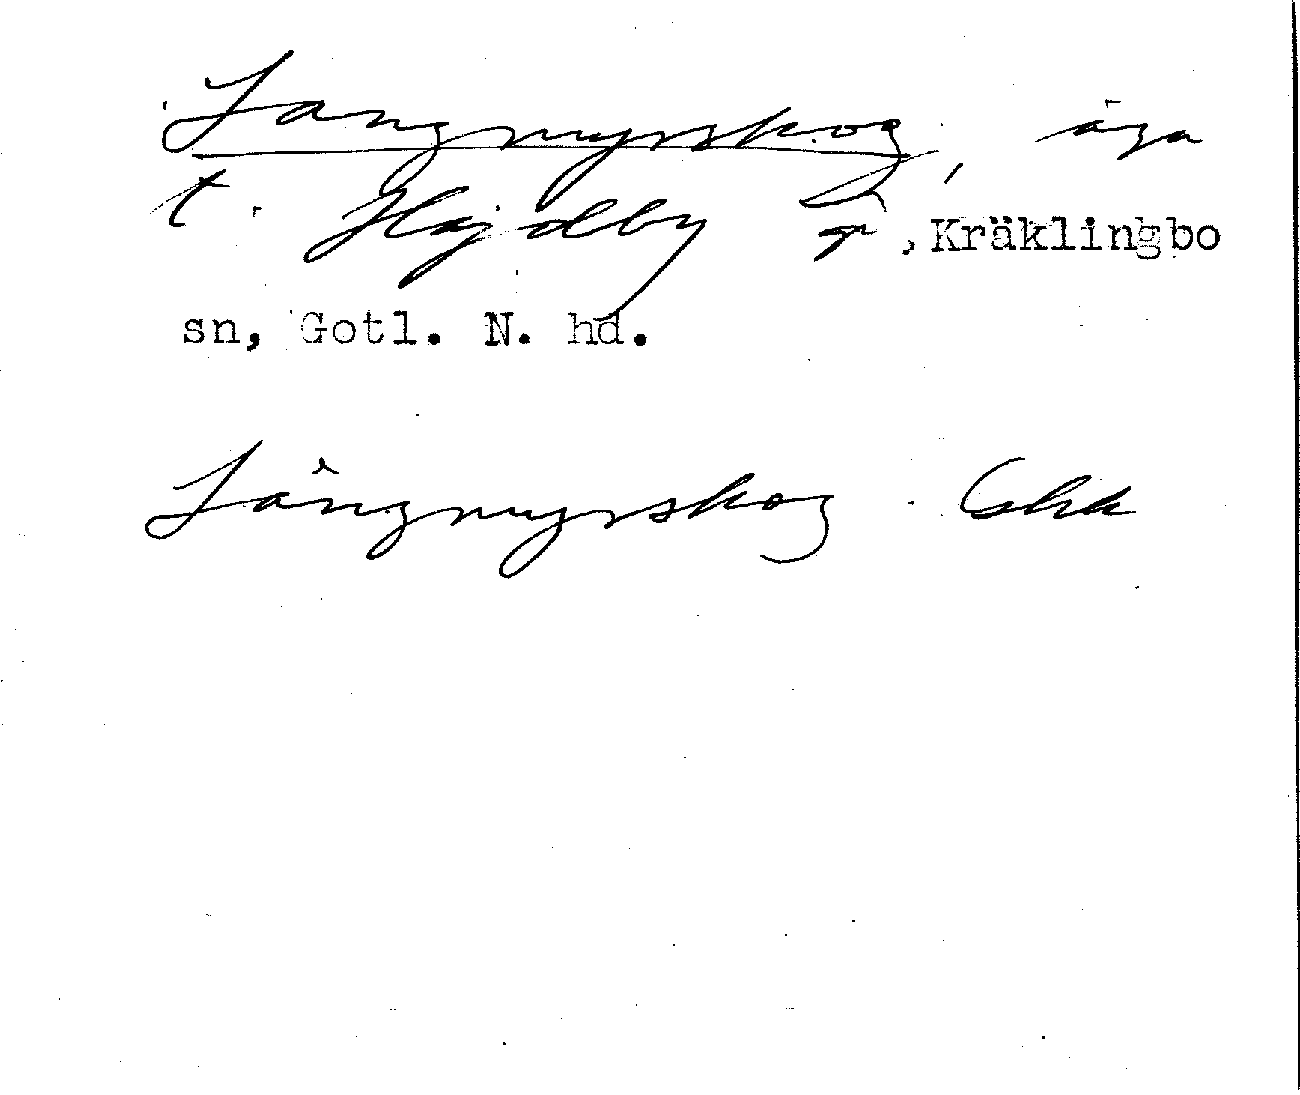 Langmyrskog, äga
t. Hajdby gd, Kräklingbo
sn, Gotl. N. hd.
Långmyrskog Ghk